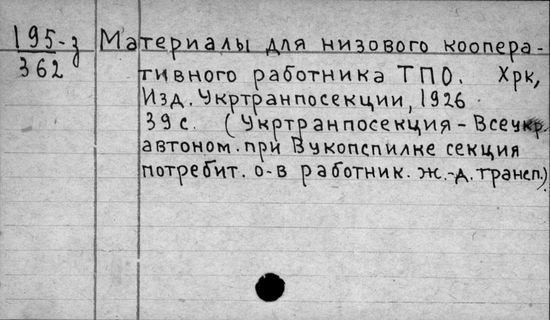 195-з Материалы для низового коопера-
362 тивного работника ТПО. Хрк,
Изд. Укртранпосекции, 1926.
39 с. (Укртранпосекция - Всеукр.
автоном. при Вукопспилке секция
потребит. о-в работник. ж.-д. трансп.)